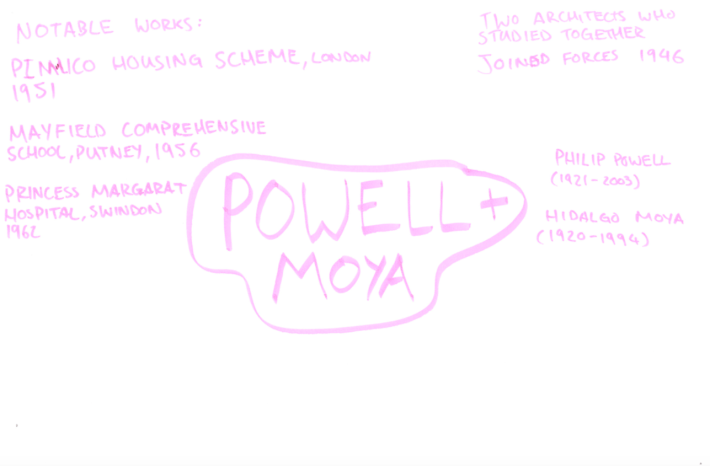 NOTABLE WORKS:
PIMLICO HOUSING SCHEME, LONDON
1951
MAYFIELD COMPREHENSIVE
SCHOOL, PUTNEY, 1956
PRINCESS MARGARAT
HOSPITAL, SWINDON
1962
POWELL +
MOYA
TWO ARCHITECTS WHO
STUDIED TOGETHER
JOINED FORCES 1946
PHILIP POWELL
(1921-2003)
HIDALGO MOYA
(1920-1994)